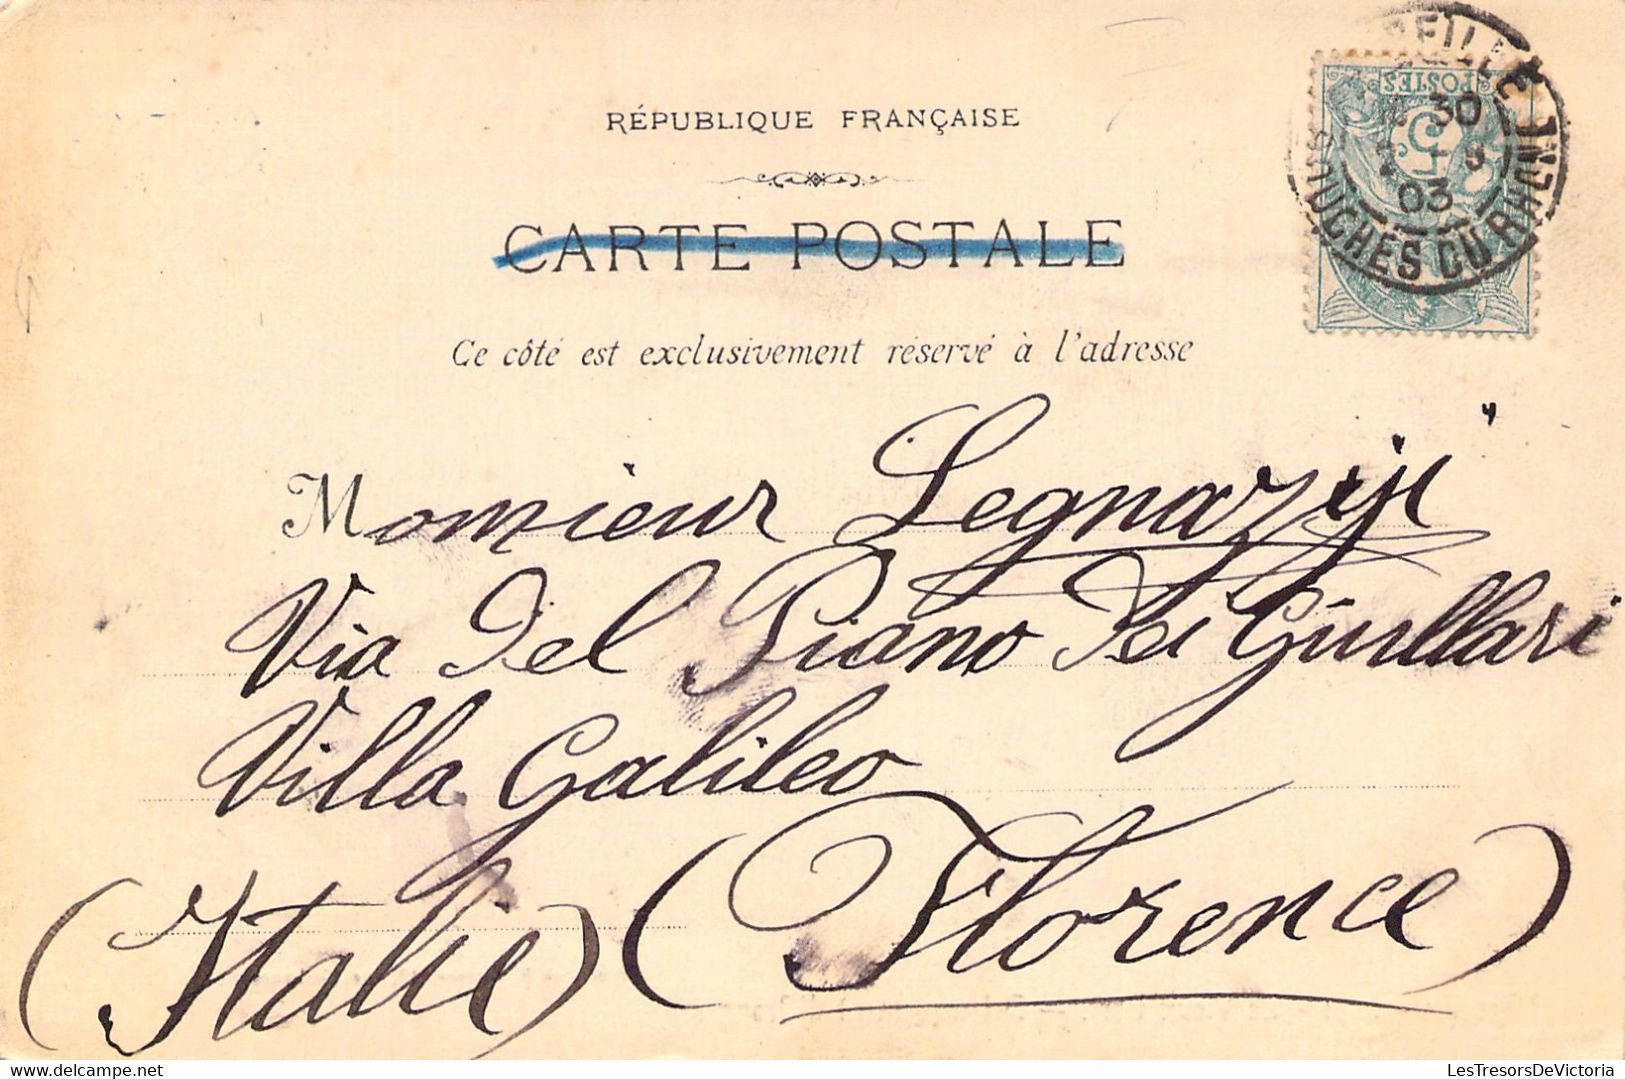 RÉPUBLIQUE FRANÇAISE
CARTE POSTALE
Ce côté est exclusivement réservé à l'adresse
POSTES
5
30
03
BOUCHES DU RHONE
Monsieur
Via Del Piano Dei Giullari
Villa Galileo
(Italie) (Florence)
LesTresorsDeVictoria